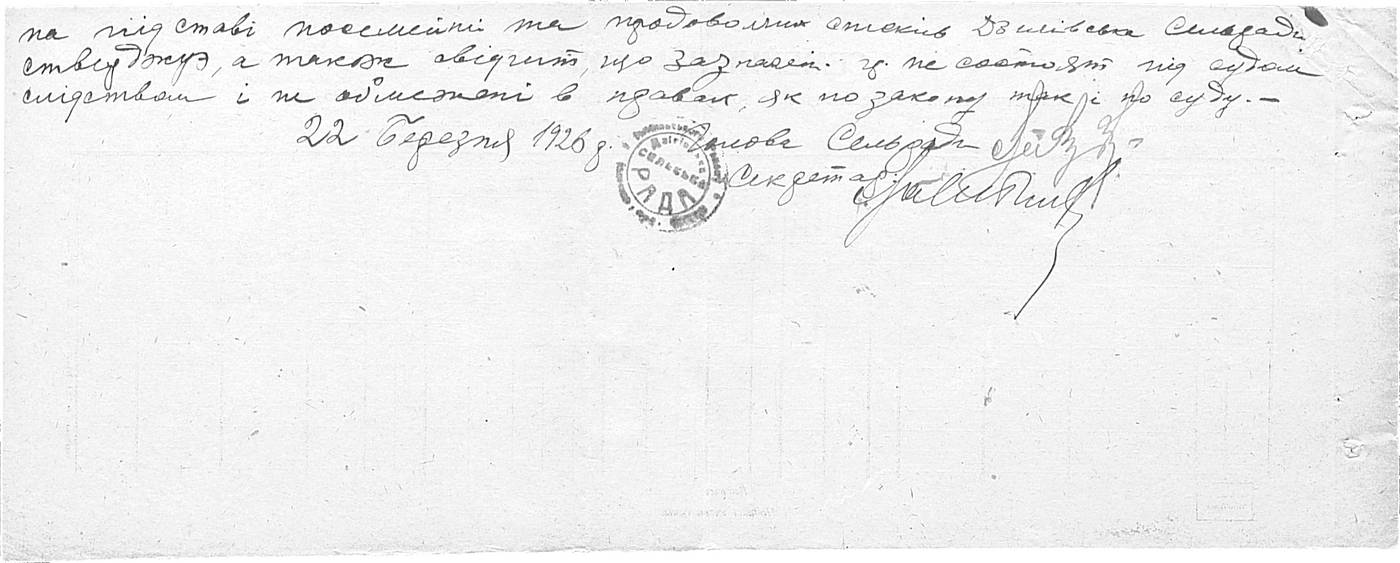 на підставі посемейніх та продовольчих списків Сельради
стверджує, а також свідчит, що зазначені гр. не состоят під судом
слідством і не обмежені в правах, як по закону так і по суду. —
22 Березня 1926 р. Голова Сельради
Секретар
СІЛЬСЬКА
РАДА